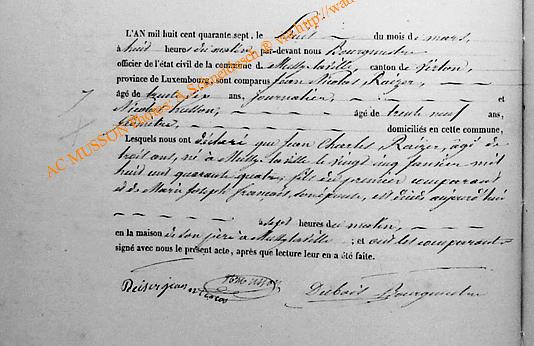 L'AN mil huit cent quarante sept, le huit du mois de mars,
à huit heures du matin, par-devant nous Bourgmestre
officier de l'état civil de la commune d. Mussy-la-ville canton de Virton,
province de Luxembourg, sont comparus Jean Nicolas Raizer,
âgé de trente six ans, journalier, et
Nicolas âgé de trente neuf ans,
domiciliés en cette commune,
Lesquels nous ont déclaré que Jean Charles Raizer, âgé de
trois ans, né à Mussy-la-ville le vingt cinq janvier mil
huit cent quarante quatre, fils du premier comparant
et de Marie Joseph François, son épouse, est décédé aujourd'hui
à sept heures du matin,
en la maison de son père à Mussy-la-ville ; et ont les comparants
signé avec nous le présent acte, après que lecture leur en a été faite.
Dubois Bourgmestre
AC MUSSON Photos A. Schneidesch ®